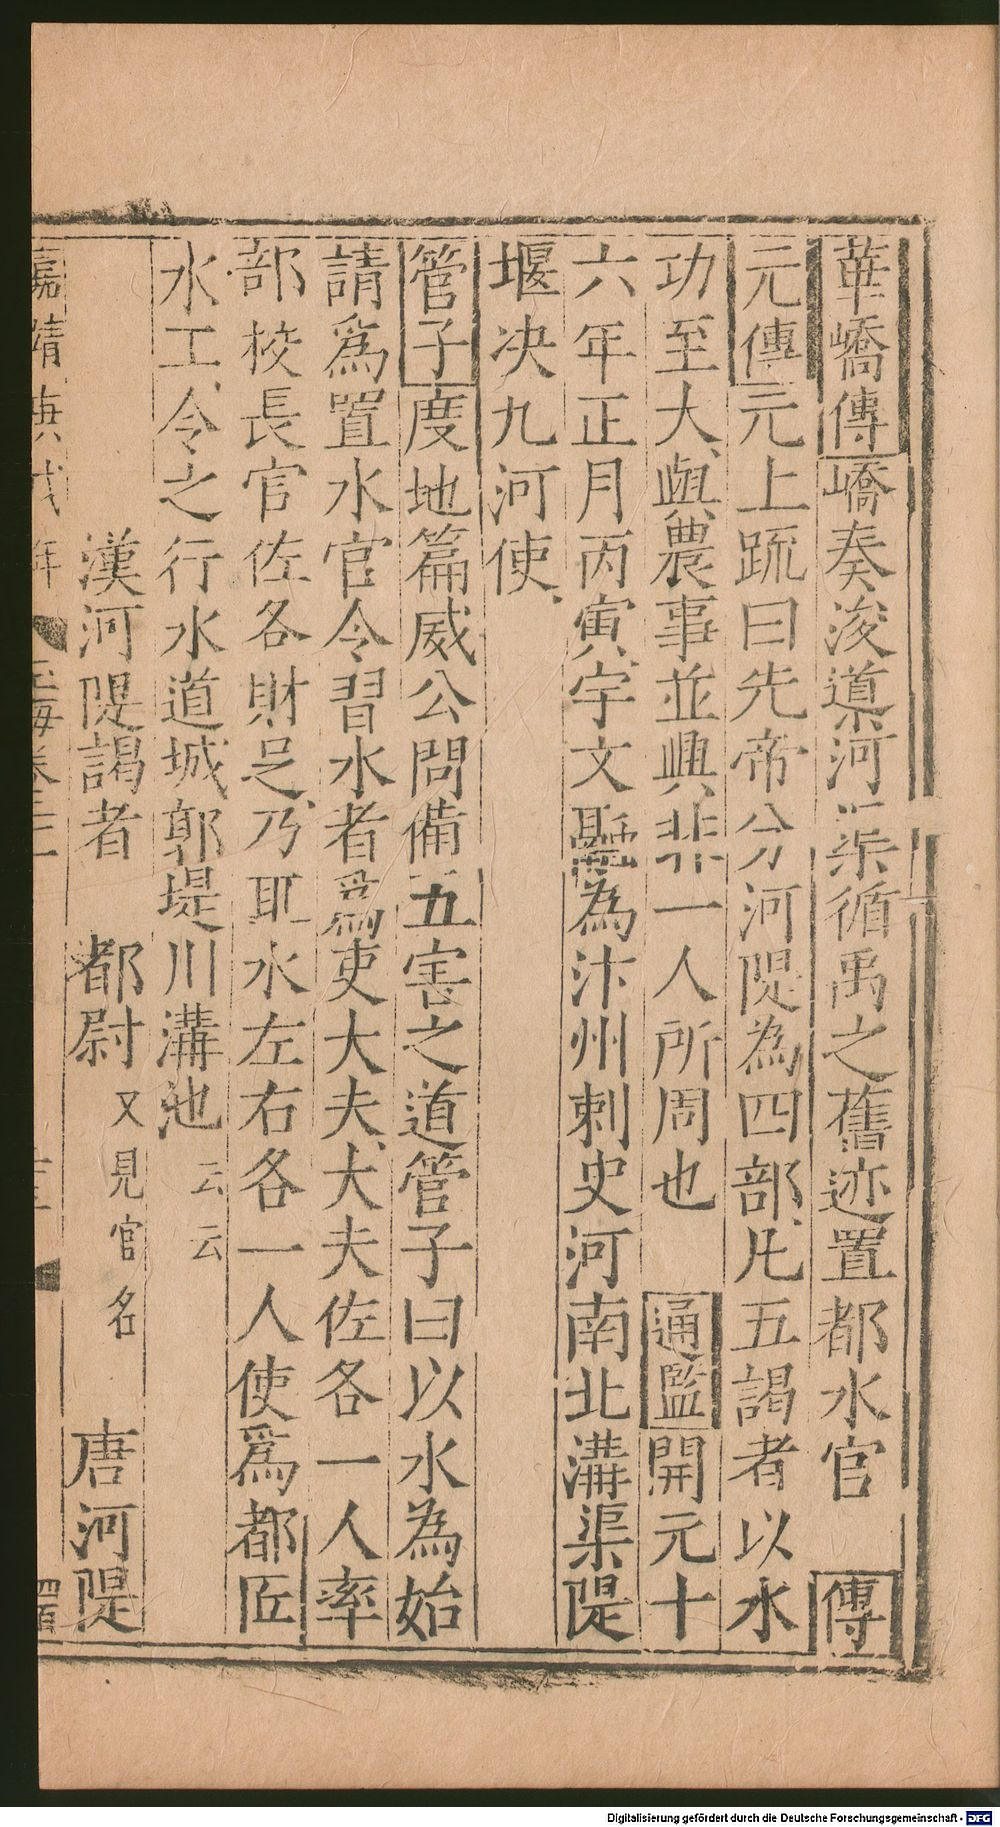 華嶠傳嶠奏浚道河渠循禹之舊迹置都水官　傳
元傳元上䟽曰先帝分河隄為四部凡五謁者以水
功至大與農事並興非一人所周也　通監開元十
六年正月丙寅宇文融為汴州刺史河南北溝渠隄
堰决九河使
管子度地篇威公問備五害之道管子曰以水為始
請爲置水官令習水者爲吏大夫大夫佐各一人率
部校長官佐各財足乃取水左右各一人使爲都匠
水工令之行水道城郭堤川溝池云云
漢河隄謁者　都尉又見官名　唐河隄
嘉靖庚戌年　玉海卷
Digitalisierung gefördert durch die Deutsche Forschungsgemeinschaft - DFG